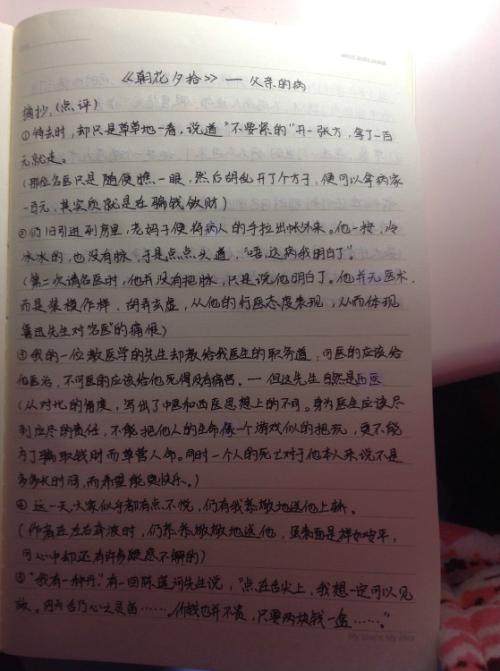 《朝花夕拾》— 父亲的病
摘抄(点评)
①待去时,却只是草草地一看,说道“不要紧的”开一张方,拿了一百
元就走。
(那位名医只是随便瞧一眼,然后胡乱开了个方子,便可以拿病家
一百元,其实质就是在骗钱敛财)
②仍旧引进到房里,老妈子便将病人的手拉出帐外来。他一按,冷
冰冰的,也没有脉,于是点点头道,“唔,这病我明白了”。
(第二次请名医时,他并没有把脉,只是说他明白了。他并无医术,
而是装模作样,故弄玄虚,从他的行医态度表现,从而体现
鲁迅先生对“名医”的痛恨)
③我的一位教医学的先生却教给我医生的职务道,可医的应该给
他医治,不可医的应该给他死得没有痛苦。— 但这先生自然是西医
(从对比的角度,写出了中医和西医思想上的不同。身为医生应该尽
到应尽的责任,不能把他人的生命像一个游戏似的把玩,更不能
为了骗取钱财而草菅人命。同时一个人的死亡对于他本人来说不是
多么长的时间,而希望能更快乐。)
④这一天大家似乎都有点不悦,仍有我恭敬地送他上轿。
(作者在左右奔波时,仍恭恭敬敬地送他,虽表面是祥如安平,
可心中却还有许多疑惑不解的)
⑤“我有一种丹,”有一回陈莲河先生说,“点在舌尖上,我想一定可以见
效。因为舌乃心之灵苗……。价钱也并不贵,只要两块钱一盒……。”